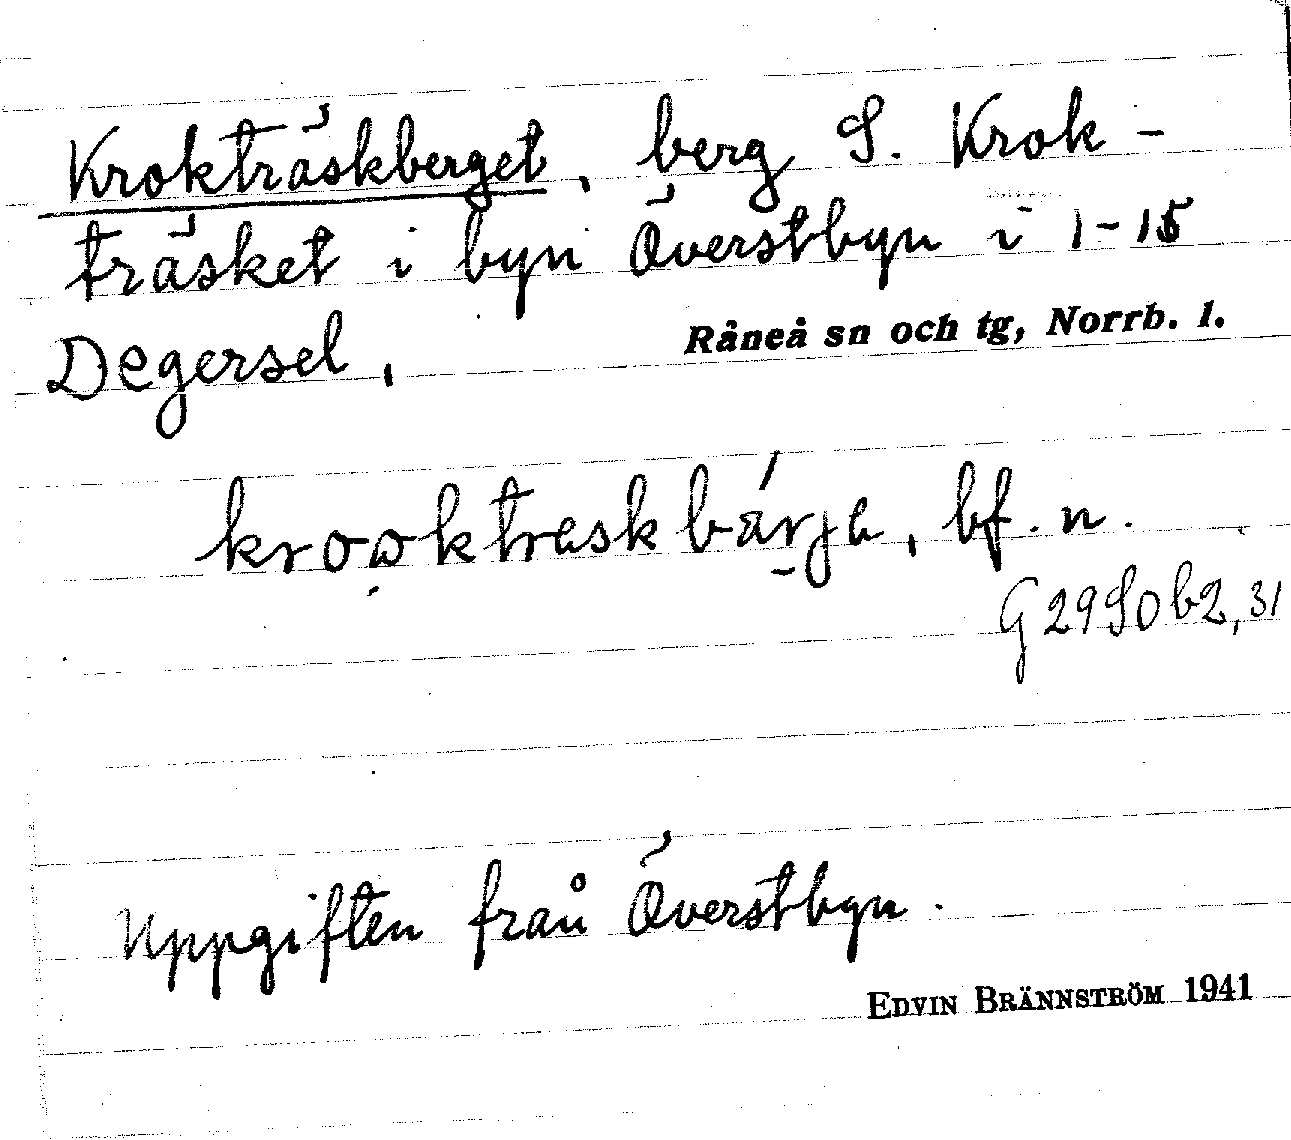 Krokträskberget, berg S. Krok-
träsket i byn Överstbyn i 1-15
Degersel,
Råneå sn och tg, Norrb. l.
bf. n.
G 29 S0 b2, 31
Uppgiften från Överstbyn.
EDVIN BRÄNNSTRÖM 1941